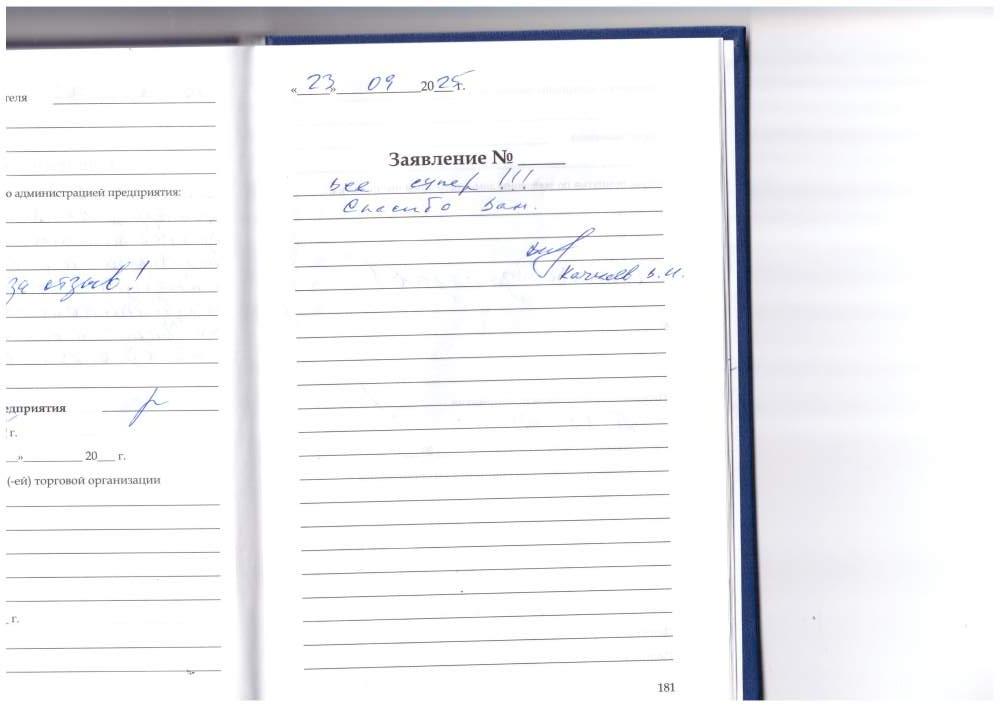 теля
о администрацией предприятия:
за отзыв!
едприятия
г.
» 20 г.
(-ей) торговой организации
г.
«23» 09 2025 г.
Заявление №
Все супер!!!
Спасибо Вам.
В.И.
181